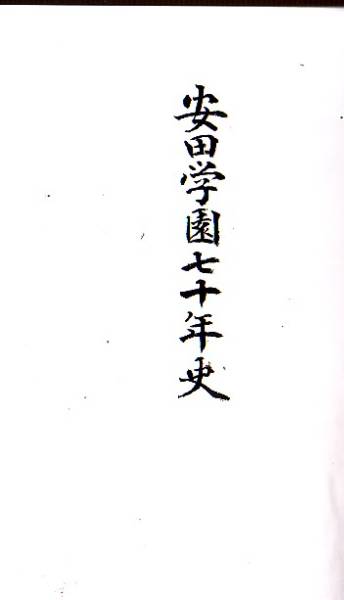 安田学園七十年史